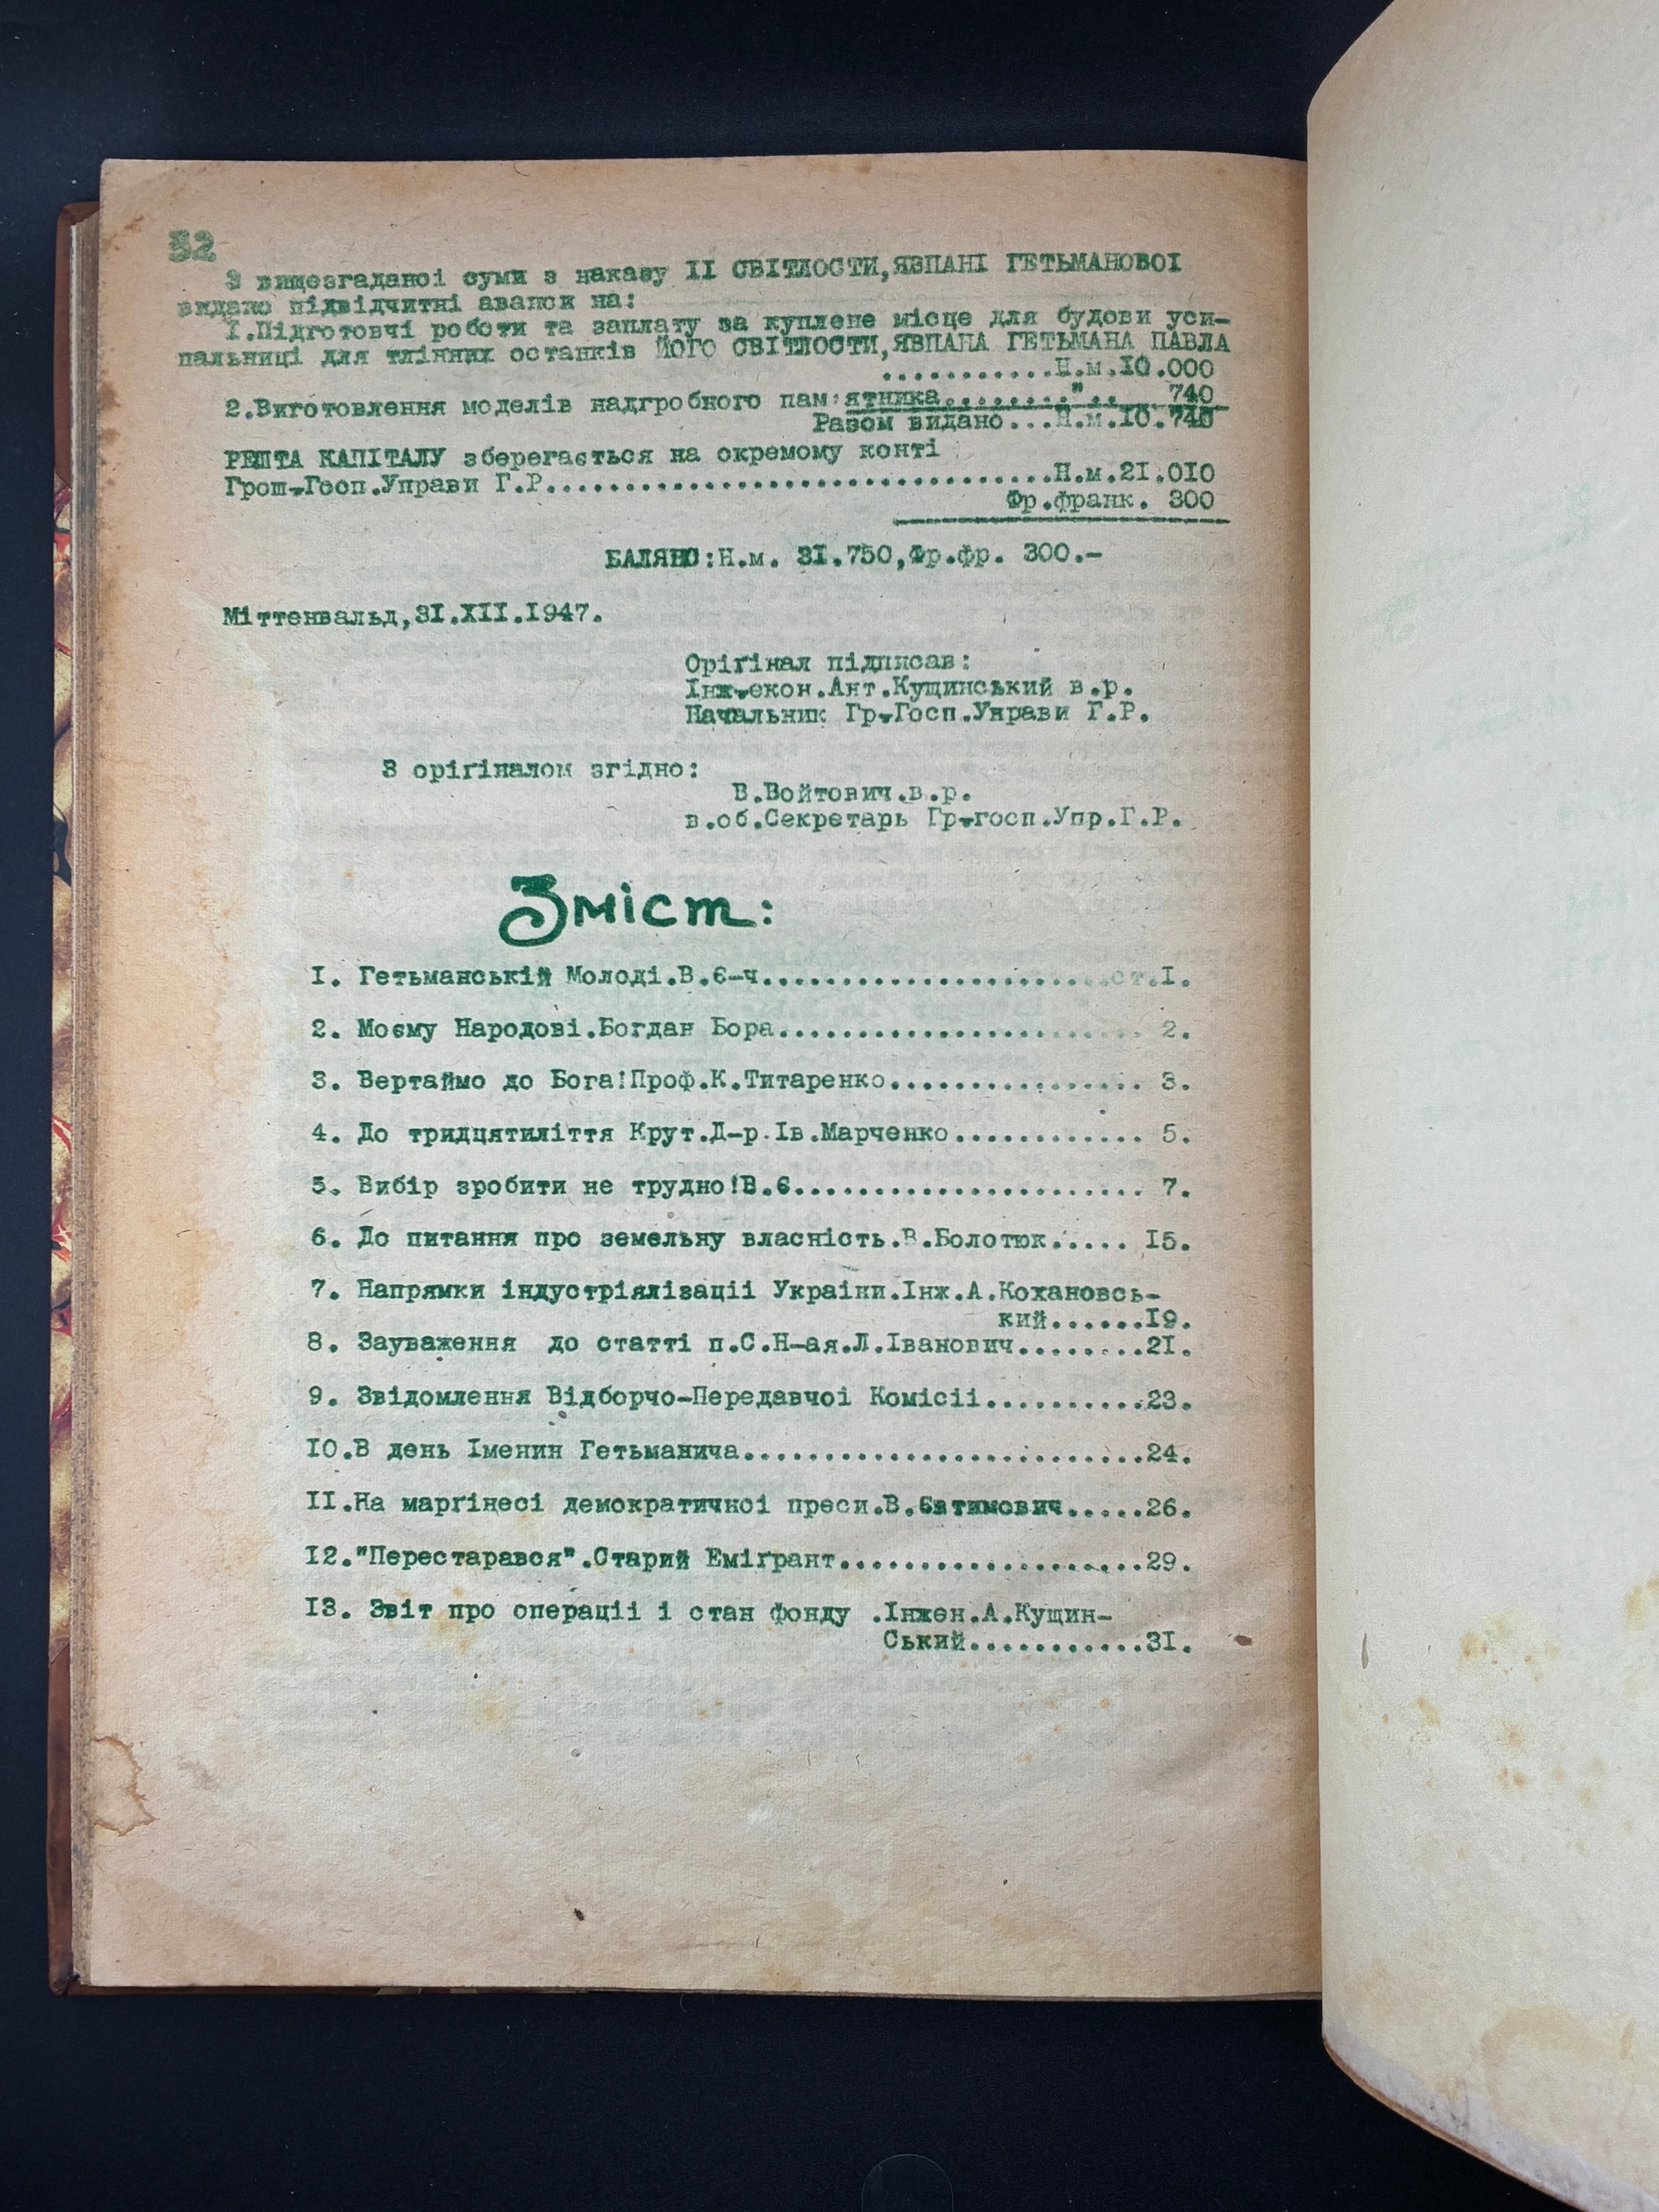 32
З вищезгаданоі суми з наказу ІІ СВІТЛОСТИ,ЯВПАНІ ГЕТЬМАНОВОІ
видано підвідчитні аванси на:
І.Підготовчі роботи та заплату за куплене місце для будови уси-
пальниці для тлінних останків ЙОГО СВІТЛОСТИ,ЯВПАНА ГЕТЬМАНА ПАВЛА
...........Н.м.ІО.000
2.Виготовлення моделів надгробного пам'ятника........".. 740
Разом видано...Н.м.ІО.740
РЕШТА КАПІТАЛУ зберегається на окремому конті
Грош-Госп.Управи Г.Р................................Н.м.2І.ОІО
Фр.франк. 300
БАЛЯНС:Н.м. 3І.750,Фр.фр. 300.-
Міттенвальд,3І.ХІІ.І947.
Оріґінал підписав:
Інж-екон.Ант.Кущинський в.р.
Начальник Гр-Госп.Управи Г.Р.
З оріґіналом згідно:
В.Войтович.в.р.
в.об.Секретарь Гр-госп.Упр.Г.Р.
Зміст:
І. Гетьманській Молоді.В.Є-ч......................ст.І.
2. Моєму Народові.Богдан Бора....................... 2.
3. Вертаймо до Бога!Проф.К.Титаренко................ 3.
4. До тридцятиліття Крут.Д-р.Ів.Марченко............ 5.
5. Вибір зробити не трудно!В.Є...................... 7.
6. До питання про земельну власність.В.Болотюк..... І5.
7. Напрямки індустріялізаціі Украіни.Інж.А.Кохановсь-
кий......І9.
8. Зауваження до статті п.С.Н-ая.Л.Іванович........2І.
9. Звідомлення Відборчо-Передавчоі Комісіі..........23.
ІО.В день Іменин Гетьманича.........................24.
ІІ.На марґінесі демократичноі преси.В.Євтимович.....26.
І2."Перестарався".Старий Еміґрант...................29.
І3. Звіт про операціі і стан фонду .Інжен.А.Кущин-
Ський...........3І.